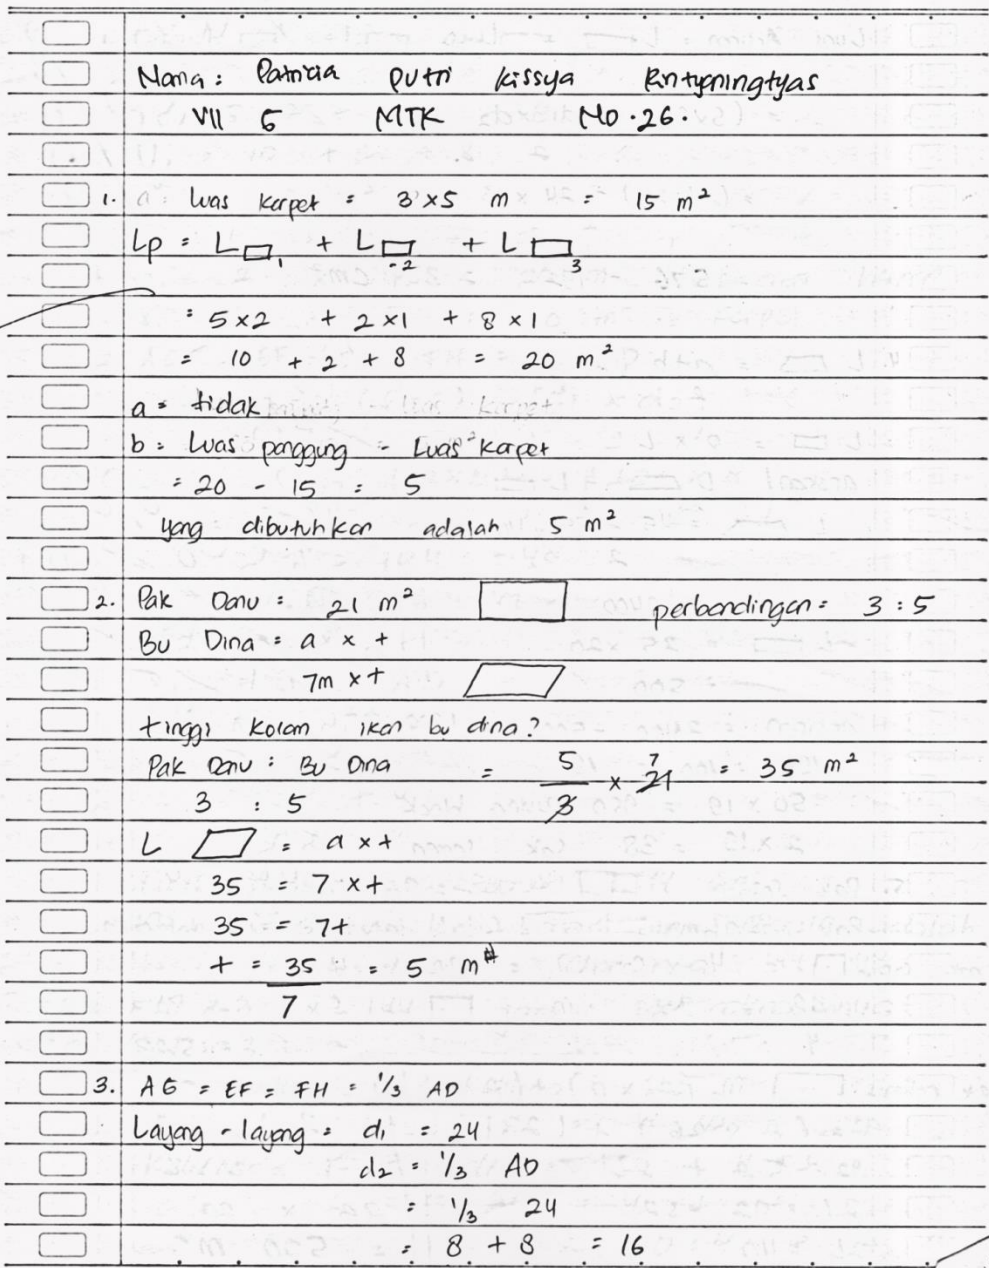 Nama : Patricia Putri Kissya
VII 6 MTK No. 26.
1. a. Luas Karpet = 3 × 5 m = 15 m²
Lp = L▭1 + L▭2 + L▭3
= 5 × 2 + 2 × 1 + 8 × 1
= 10 + 2 + 8 = 20 m²
a = tidak
b = Luas panggung - Luas Karpet
= 20 - 15 = 5
yang dibutuhkan adalah 5 m²
2. Pak Danu = 21 m² perbandingan = 3 : 5
Bu Dina = a × t
7m × t
tinggi kolam ikan bu dina?
Pak Danu : Bu Dina = 5/3 × 21 7 = 35 m²
3 : 5
L ▱ = a × t
35 = 7 × t
35 = 7t
t = 35/7 = 5 m
3. AG = EF = FH = 1/3 AD
Layang - layang = d1 = 24
d2 = 1/3 AD
= 1/3 24
= 8 + 8 = 16